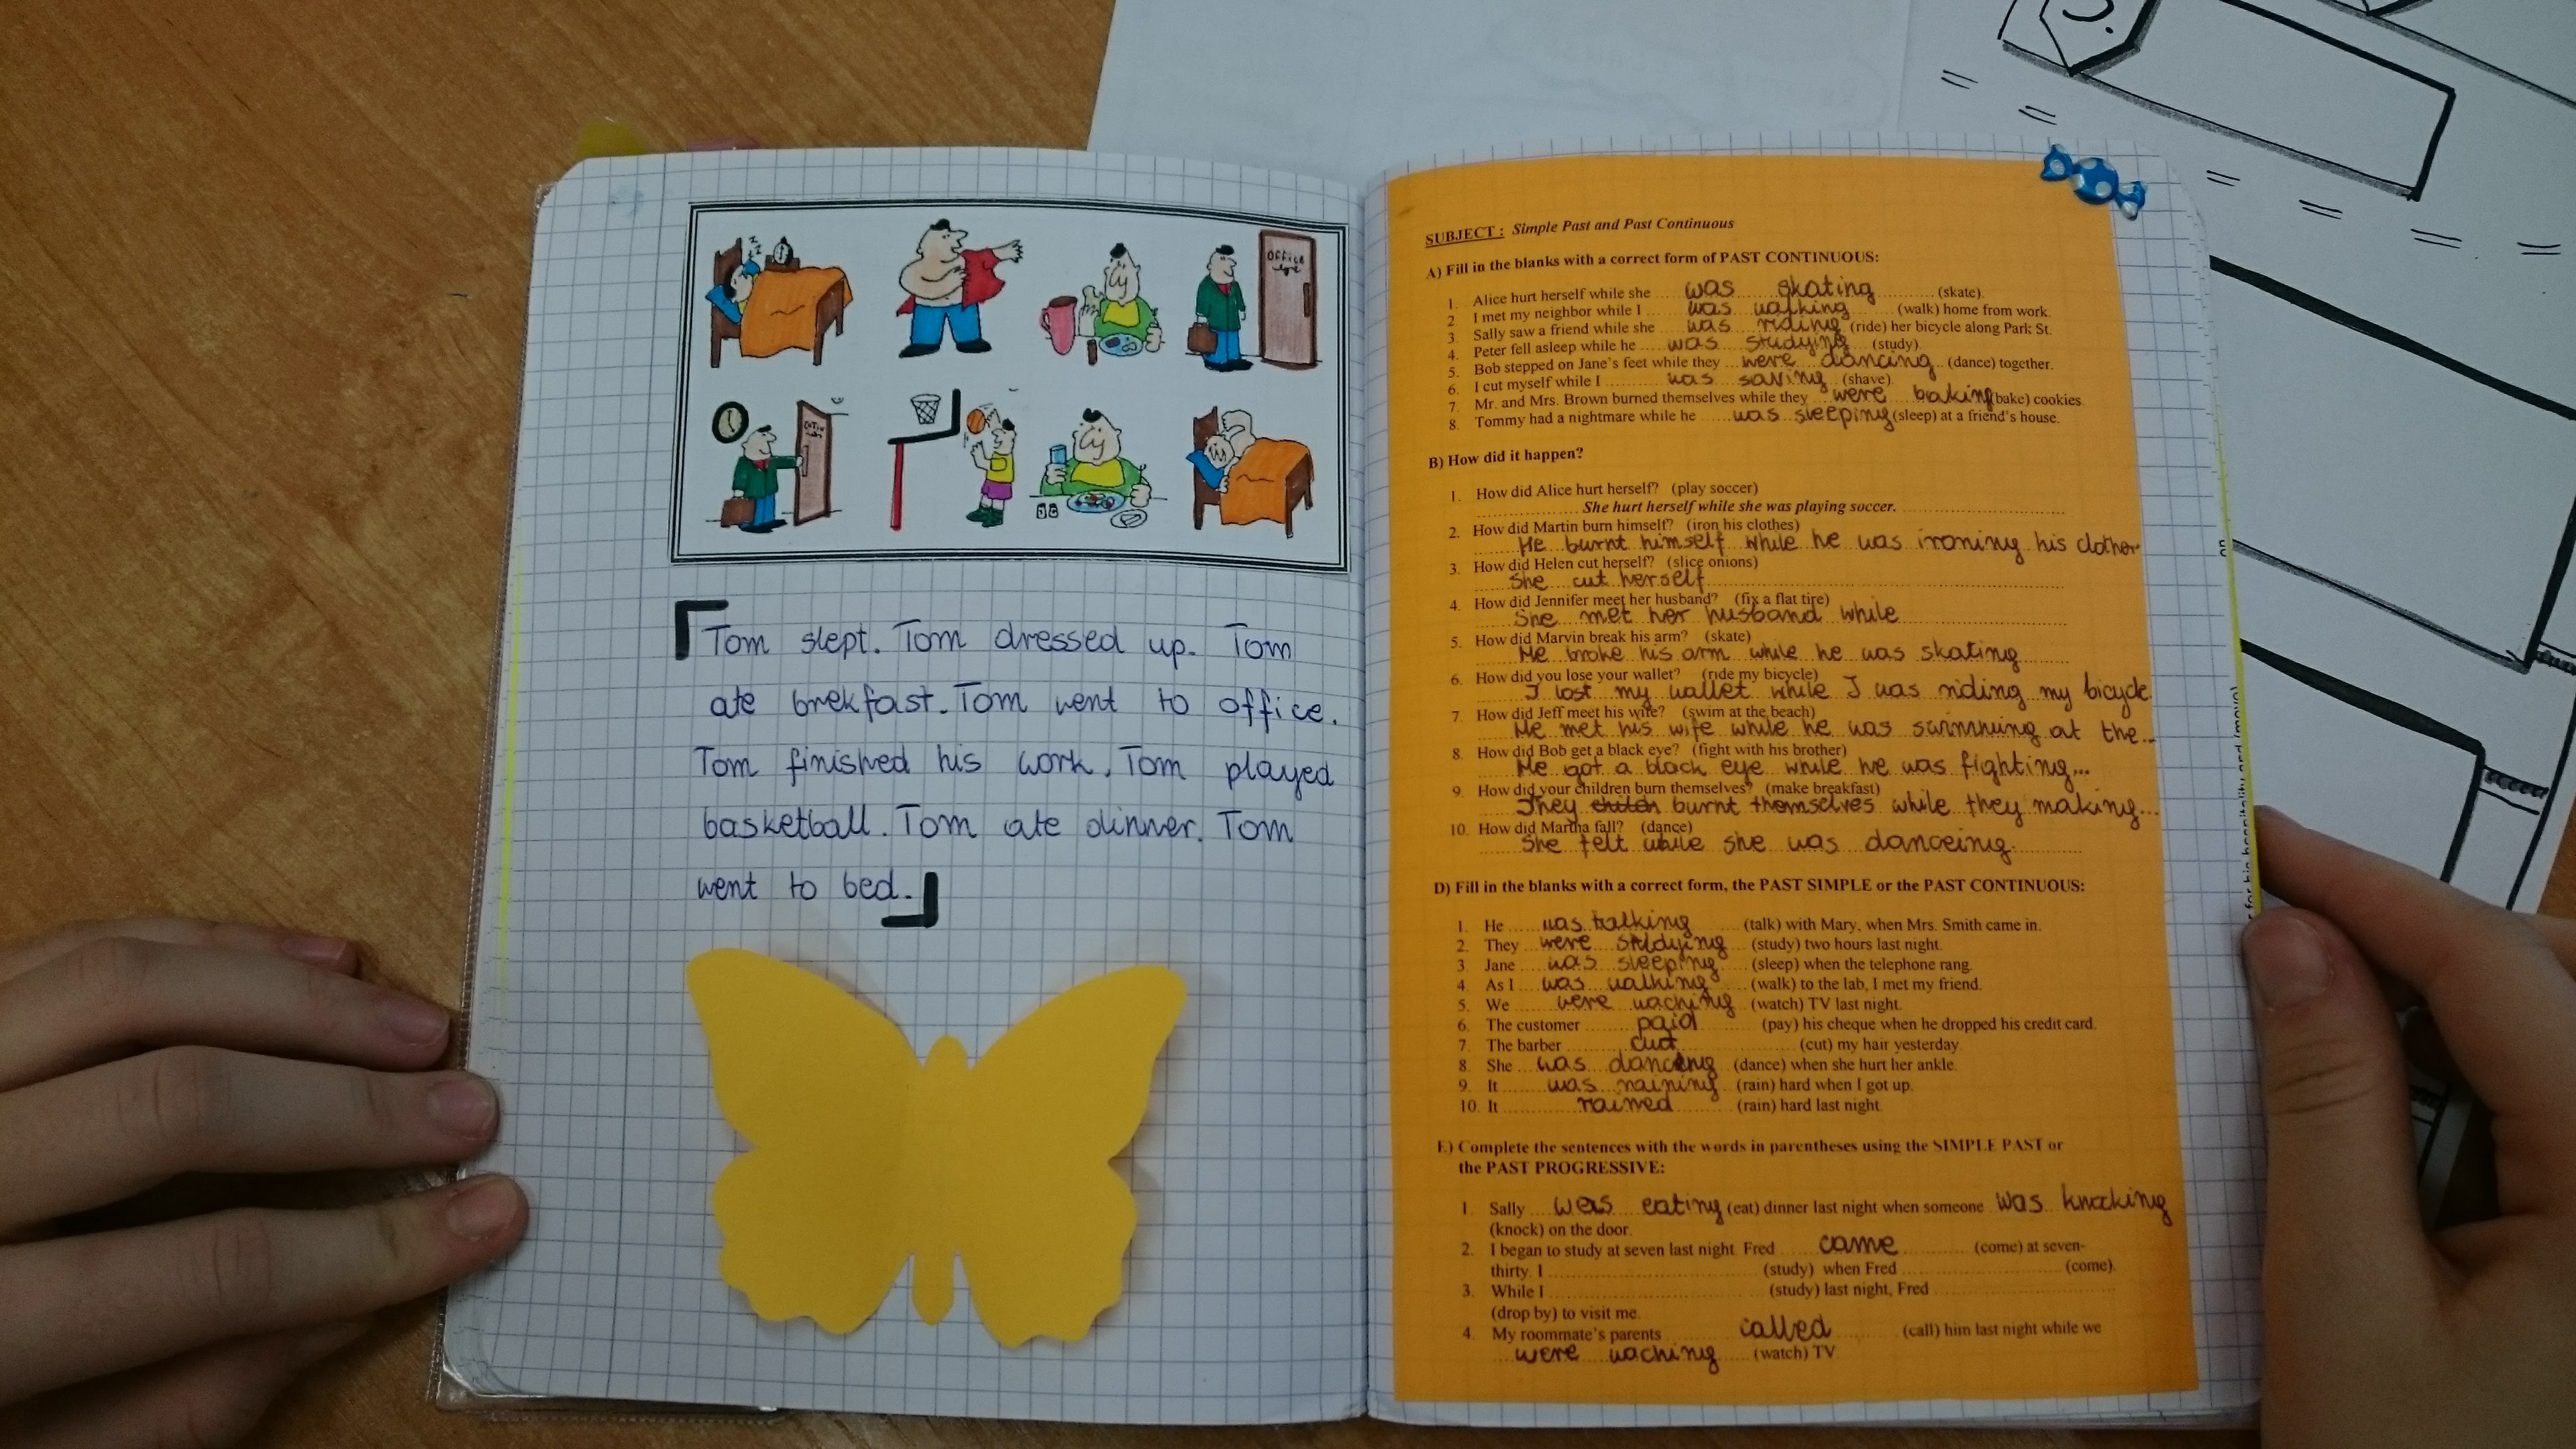 OFFICE
Tom slept. Tom dressed up. Tom
ate brekfast. Tom went to office.
Tom finished his work. Tom played
basketball. Tom ate dinner. Tom
went to bed.
SUBJECT : Simple Past and Past Continuous
A) Fill in the blanks with a correct form of PAST CONTINUOUS:
1. Alice hurt herself while she was skating (skate).
2. I met my neighbor while I was walking (walk) home from work.
3. Sally saw a friend while she was riding (ride) her bicycle along Park St.
4. Peter fell asleep while he was studying (study).
5. Bob stepped on Jane's feet while they were dancing (dance) together.
6. I cut myself while I was saving (shave).
7. Mr. and Mrs. Brown burned themselves while they were baking (bake) cookies.
8. Tommy had a nightmare while he was sleeping (sleep) at a friend's house.
B) How did it happen?
1. How did Alice hurt herself? (play soccer)
She hurt herself while she was playing soccer.
2. How did Martin burn himself? (iron his clothes)
He burnt himself while he was ironing his clother
3. How did Helen cut herself? (slice onions)
She cut herself
4. How did Jennifer meet her husband? (fix a flat tire)
She met her husband while
5. How did Marvin break his arm? (skate)
He broke his arm while he was skating
6. How did you lose your wallet? (ride my bicycle)
I lost my wallet while I was riding my bicycle
7. How did Jeff meet his wife? (swim at the beach)
He met his wife while he was swimming at the...
8. How did Bob get a black eye? (fight with his brother)
He got a black eye while he was fighting...
9. How did your children burn themselves? (make breakfast)
They burnt themselves while they making...
10. How did Martha fall? (dance)
She felt while she was danceing.
D) Fill in the blanks with a correct form, the PAST SIMPLE or the PAST CONTINUOUS:
1. He was talking (talk) with Mary, when Mrs. Smith came in.
2. They were studying (study) two hours last night.
3. Jane was sleeping (sleep) when the telephone rang.
4. As I was walking (walk) to the lab, I met my friend.
5. We were waching (watch) TV last night.
6. The customer paid (pay) his cheque when he dropped his credit card.
7. The barber cut (cut) my hair yesterday.
8. She was dancing (dance) when she hurt her ankle.
9. It was raining (rain) hard when I got up.
10. It rained (rain) hard last night.
E) Complete the sentences with the words in parentheses using the SIMPLE PAST or
the PAST PROGRESSIVE:
1. Sally was eating (eat) dinner last night when someone was knocking
(knock) on the door.
2. I began to study at seven last night. Fred came (come) at seven-
thirty. I (study) when Fred (come).
3. While I (study) last night, Fred
(drop by) to visit me.
4. My roommate's parents called (call) him last night while we
were waching (watch) TV